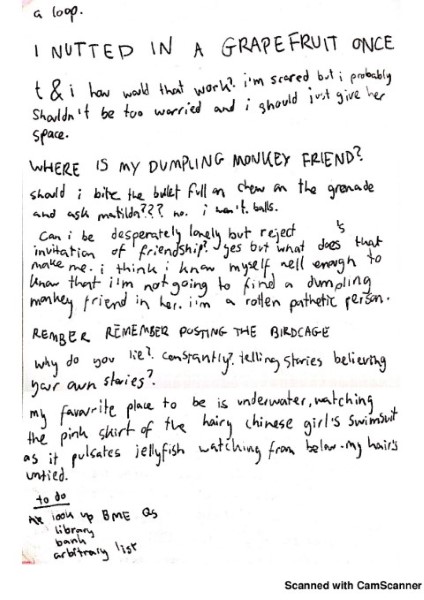 a loop.
I NUTTED IN A GRAPEFRUIT ONCE
t & i how would that work? i'm scared but i probably
shouldn't be too worried and i should just give her
space.
WHERE IS MY DUMPLING MONKEY FRIEND?
should i bite the bullet full on chew on the grenade
and ask matilda??? no. i won't. balls.
can i be desperately lonely but reject 's
invitation of friendship? yes but what does that
make me. i think i know myself well enough to
know that i'm not going to find a dumpling
monkey friend in her. i'm a rotten pathetic person.
REMBER REMEMBER POSTING THE BIRDCAGE
why do you lie? constantly? telling stories believing
your own stories?
my favorite place to be is underwater, watching
the pink skirt of the hairy chinese girl's swimsuit
as it pulsates jellyfish watching from below. my hair's
untied.
to do
look up BME Qs
library
bank
arbitrary list
Scanned with CamScanner